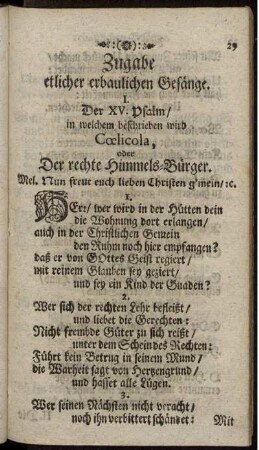 29
Zugabe
etlicher erbaulichen Gesänge.
I.
Der XV. Psalm/
in welchem beschrieben wird
Cœlicola,
oder
Der rechte Himmels-Bürger.
Mel. Nun freut euch lieben Christen g'mein/ ꝛc.
1.
HErr/ wer wird in der Hütten dein
die Wohnung dort erlangen/
auch in der Christlichen Gemein
den Ruhm noch hier empfangen?
daß er von GOttes Geist regiert/
mit reinem Glauben sey geziert/
und sey ein Kind der Gnaden?
2.
Wer sich der rechten Lehr befleißt/
und liebet die Gerechten:
Nicht frembde Güter zu sich reißt/
unter dem Schein des Rechten:
Führt kein Betrug in seinem Mund/
die Warheit sagt von Hertzengrund/
und hasset alle Lügen.
3.
Wer seinen Nächsten nicht veracht/
noch ihn verbittert schändet:
Mit